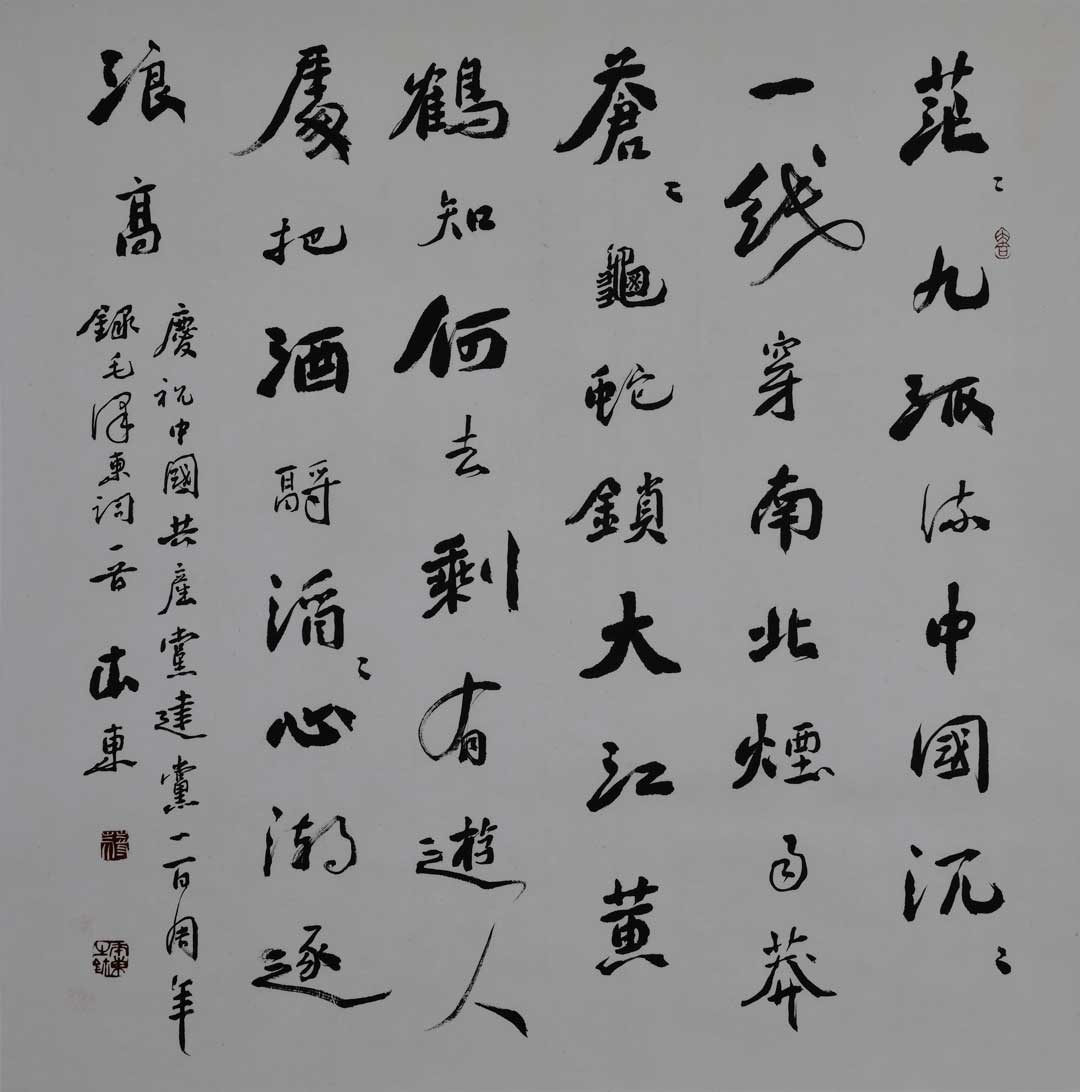 茫〻九派流中國沉〻
一线穿南北煙雨莽
蒼〻龜蛇鎖大江黄
鶴知何去剩有遊人
處把酒酹滔〻心潮逐
浪高
慶祝中國共產黨建黨一百周年
錄毛澤東詞一首 東